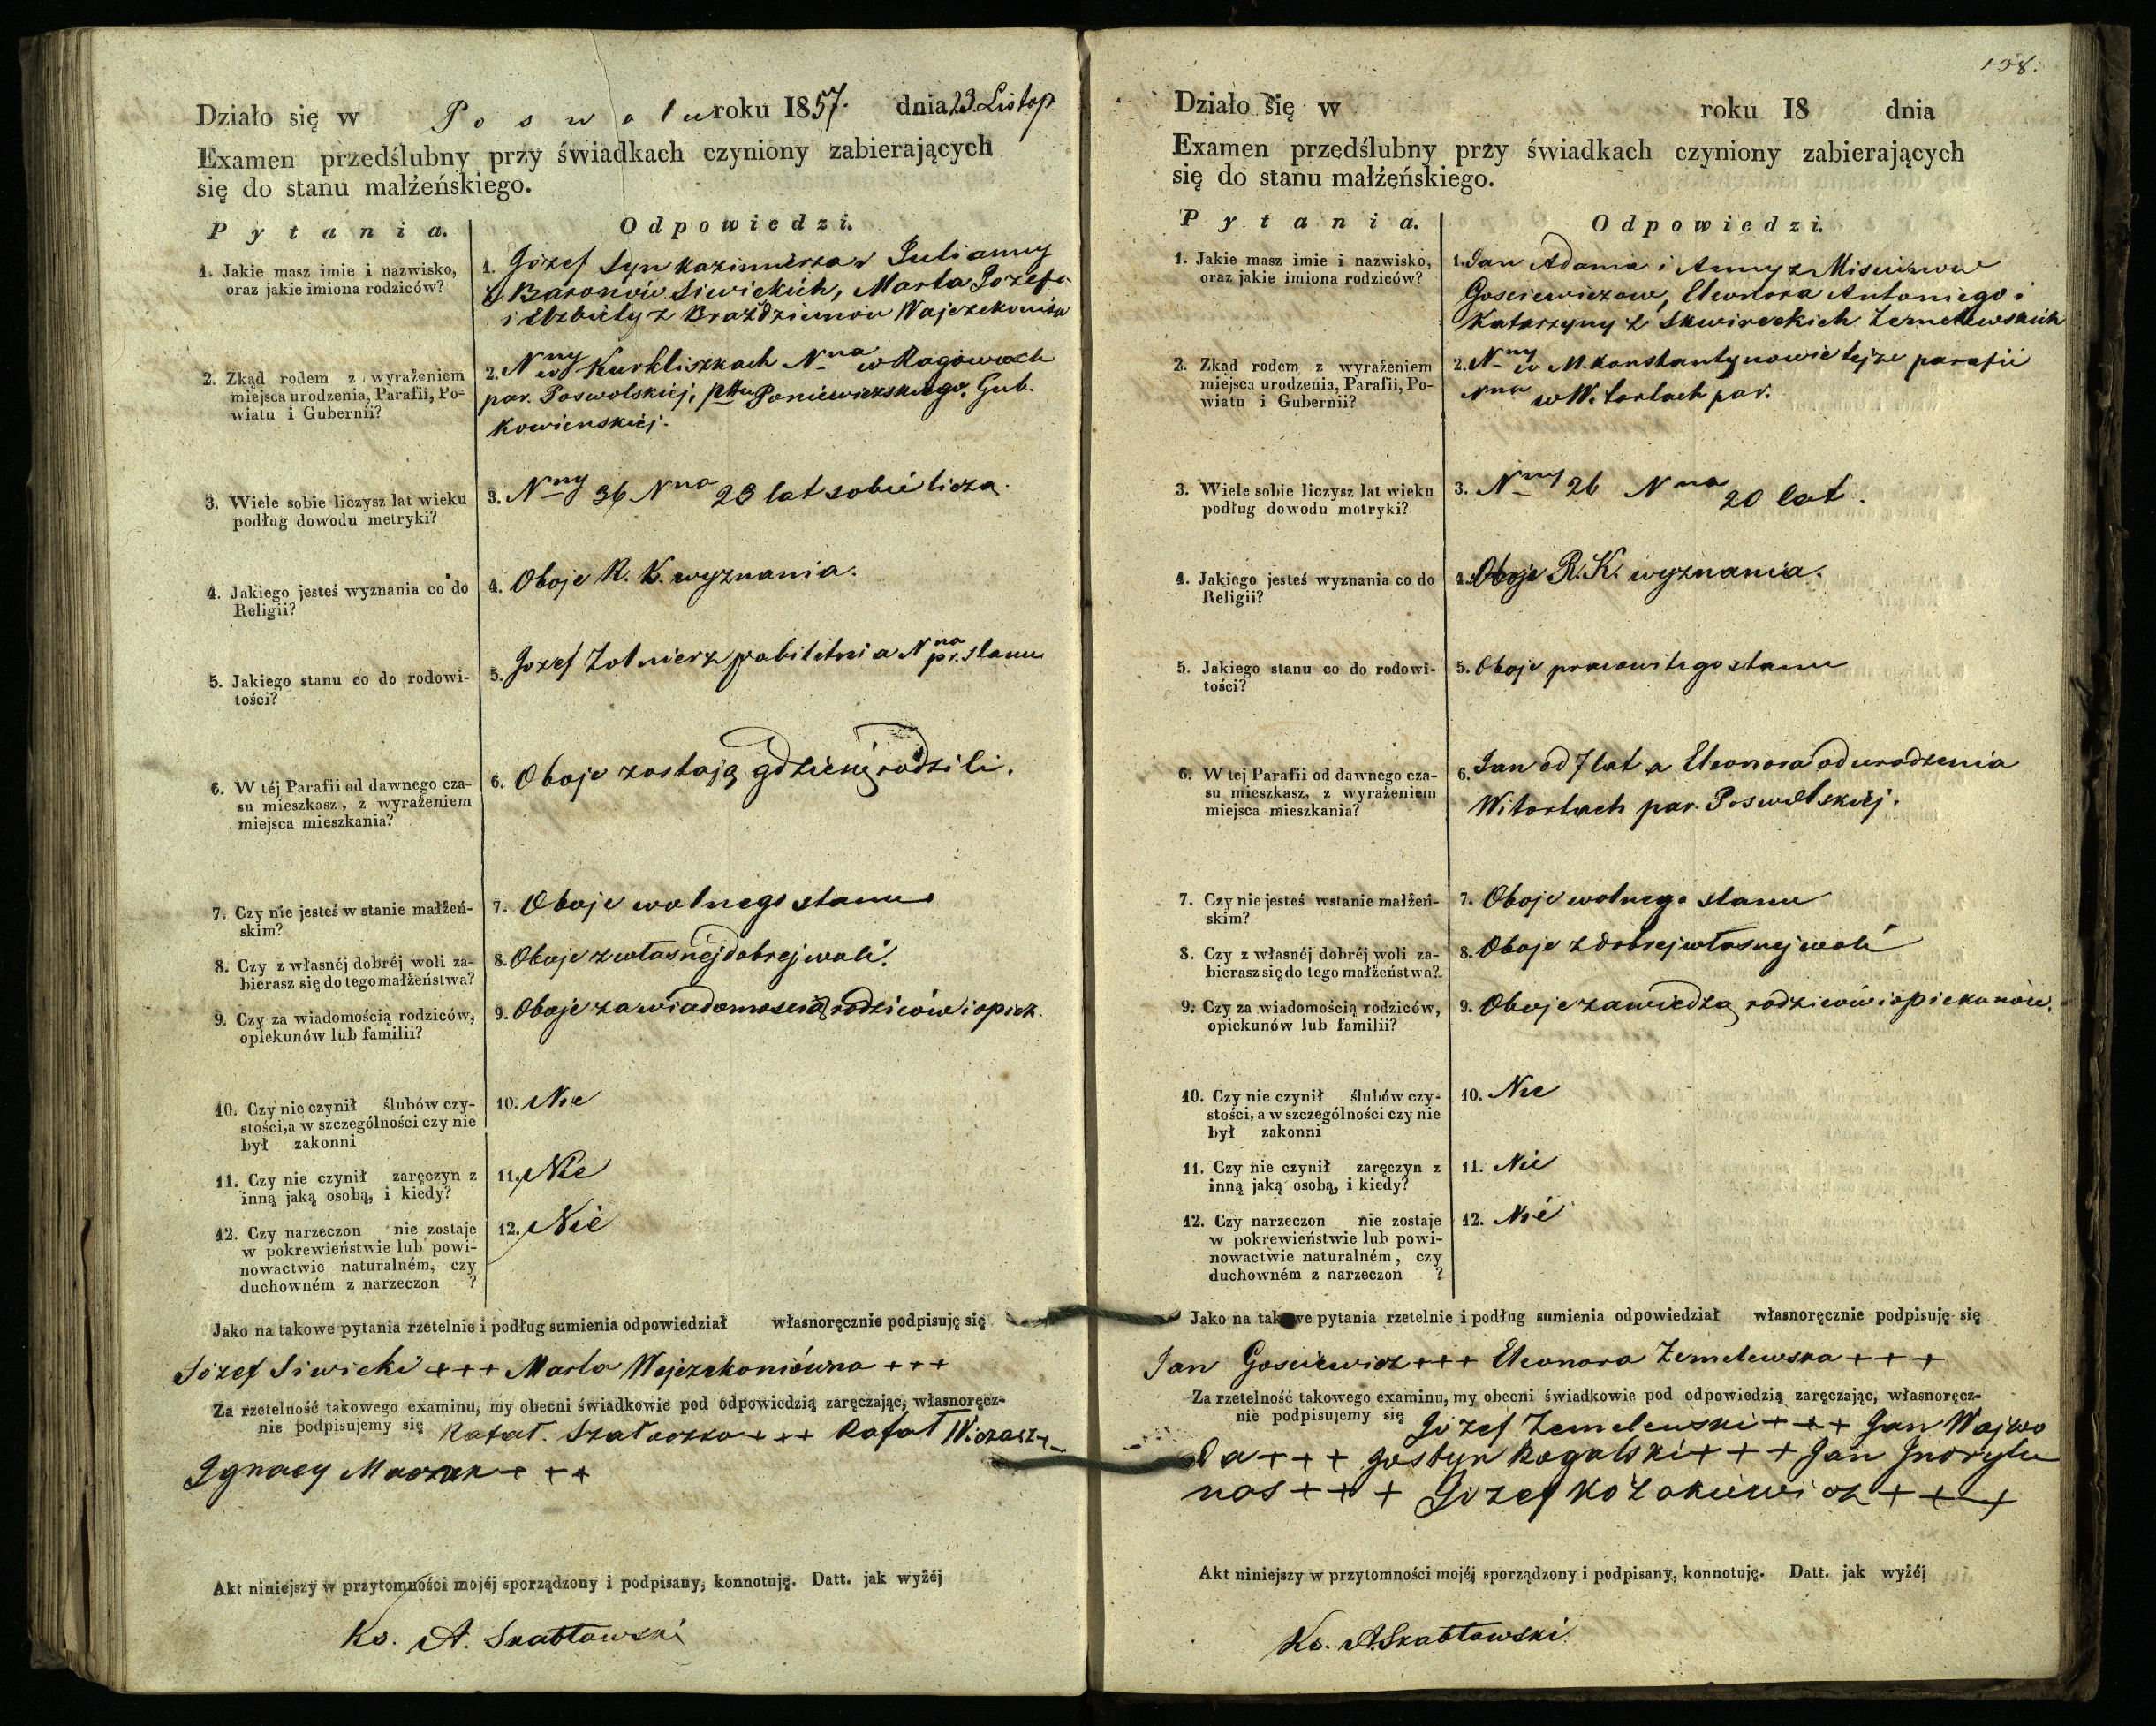 Działo się w Poswolu roku 1857. dnia 23. Listop
Examen przedślubny przy świadkach czyniony zabierających
się do stanu małżeńskiego.
Pytania. Odpowiedzi.
1. Jakie masz imie i nazwisko,
oraz jakie imiona rodziców?
1. Józef Syn Kazimierza i Julianny
z Baronów Siwickich, Marta Józefa
i Elzbiety z Braździunow Wajczekoniów
2. Zkąd rodem z wyrażeniem
miejsca urodzenia, Parafii, Po-
wiatu i Gubernii?
2. Nny w Kurkliszkach Nna w Ragówach
par. Poswolskiej, pttu Poniewiezskiego, Gub.
Kowienskiej.
3. Wiele sobie liczysz lat wieku
podług dowodu metryki?
3. Nny 36 Nna 23 lat sobie licza.
4. Jakiego jesteś wyznania co do
Religii?
4. Oboje R. K. wyznania.
5. Jakiego stanu co do rodowi-
tości?
5. Jozef Zolnierz a Nna pr. stanu
6. W téj Parafii od dawnego cza-
su mieszkasz, z wyrażeniem
miejsca mieszkania?
6. Oboje zostają gdzie się rodzili.
7. Czy nie jesteś w stanie małżeń-
skim?
7. Oboje wolnego stanu
8. Czy z własnéj dobréj woli za-
bierasz się do tego małżeństwa?
8. Oboje z własnéj dobrej woli.
9. Czy za wiadomością rodziców,
opiekunów lub familii?
9. Oboje za wiadomoscią rodziców i opiek.
10. Czy nie czynił ślubów czy-
stości, a w szczególności czy nie
był zakonni
10. Nie
11. Czy nie czynił zaręczyn z
inną jaką osobą, i kiedy?
11. Nie
12. Czy narzeczon nie zostaje
w pokrewieństwie lub powi-
nowactwie naturalném, czy
duchowném z narzeczon ?
12. Nie
Jako na takowe pytania rzetelnie i podług sumienia odpowiedział własnoręcznie podpisuję się
Józef Siwicki +++ Marta Wajczekoniówna +++
Za rzetelność takowego examinu, my obecni świadkowie pod odpowiedzią zaręczając, własnoręcz-
nie podpisujemy się Rafał. Szałaczko +++ Rafał
Ignacy Maczuk +++
Akt niniejszy w przytomności mojéj sporządzony i podpisany, konnotuję. Datt. jak wyżéj
Ks. A. Skabławski
138.
Działo się w roku 18 dnia
Examen przedślubny przy świadkach czyniony zabierających
się do stanu małżeńskiego.
Pytania. Odpowiedzi.
1. Jakie masz imie i nazwisko,
oraz jakie imiona rodziców?
1. Jan Adama i Anny z Misiunow
Gosciewiczow, Eleonora Antoniego i
Katarzyny z Skwireckich Zemelewskich
2. Zkąd rodem z wyrażeniem
miejsca urodzenia, Parafii, Po-
wiatu i Gubernii?
2. Nny w M. Konstantynowie tejze parafii
Nna w Witortach par.
3. Wiele sobie liczysz lat wieku
podług dowodu motryki?
3. Nny 26 Nna 20 lat.
4. Jakiego jesteś wyznania co do
Religii?
4. Oboje R. K. wyznania.
5. Jakiego stanu co do rodowi-
tości?
5. Oboje pracowitego stanu
6. W tej Parafii od dawnego cza-
su mieszkasz, z wyrażeniem
miejsca mieszkania?
6. Jan od 7 lat a Eleonora od urodzenia
Witortach par. Poswolskiej.
7. Czy nie jesteś wstanie małżeń-
skim?
7. Oboje wolnego stanu
8. Czy z własnéj dobréj woli za-
bierasz się do tego małżeństwa?
8. Oboje z dobrej własnej woli
9. Czy za wiadomością rodziców,
opiekunów lub familii?
9. Oboje za wiedzą rodziców i opiekunów.
10. Czy nie czynił ślubów czy-
stości, a w szczególności czy nie
był zakonni
10. Nie
11. Czy nie czynił zaręczyn z
inną jaką osobą, i kiedy?
11. Nie
12. Czy narzeczon nie zostaje
w pokrewieństwie lub powi-
nowactwie naturalném, czy
duchowném z narzeczon ?
12. Nie
Jako na takowe pytania rzetelnie i podług sumienia odpowiedział własnoręcznie podpisuję się
Jan Gosciewicz +++ Eleonora Zemelewska +++
Za rzetelność takowego examinu, my obecni świadkowie pod odpowiedzią zaręczając, własnoręcz-
nie podpisujemy się Józef Zemelewski +++ Jan Wajwo
da +++ Justyn Rogalski +++ Jan Indrylu
nas +++ Jozef Kozakiewicz +++
Akt niniejszy w przytomności mojéj sporządzony i podpisany, konnotuję. Datt. jak wyżéj
Ks. A. Skabławski.